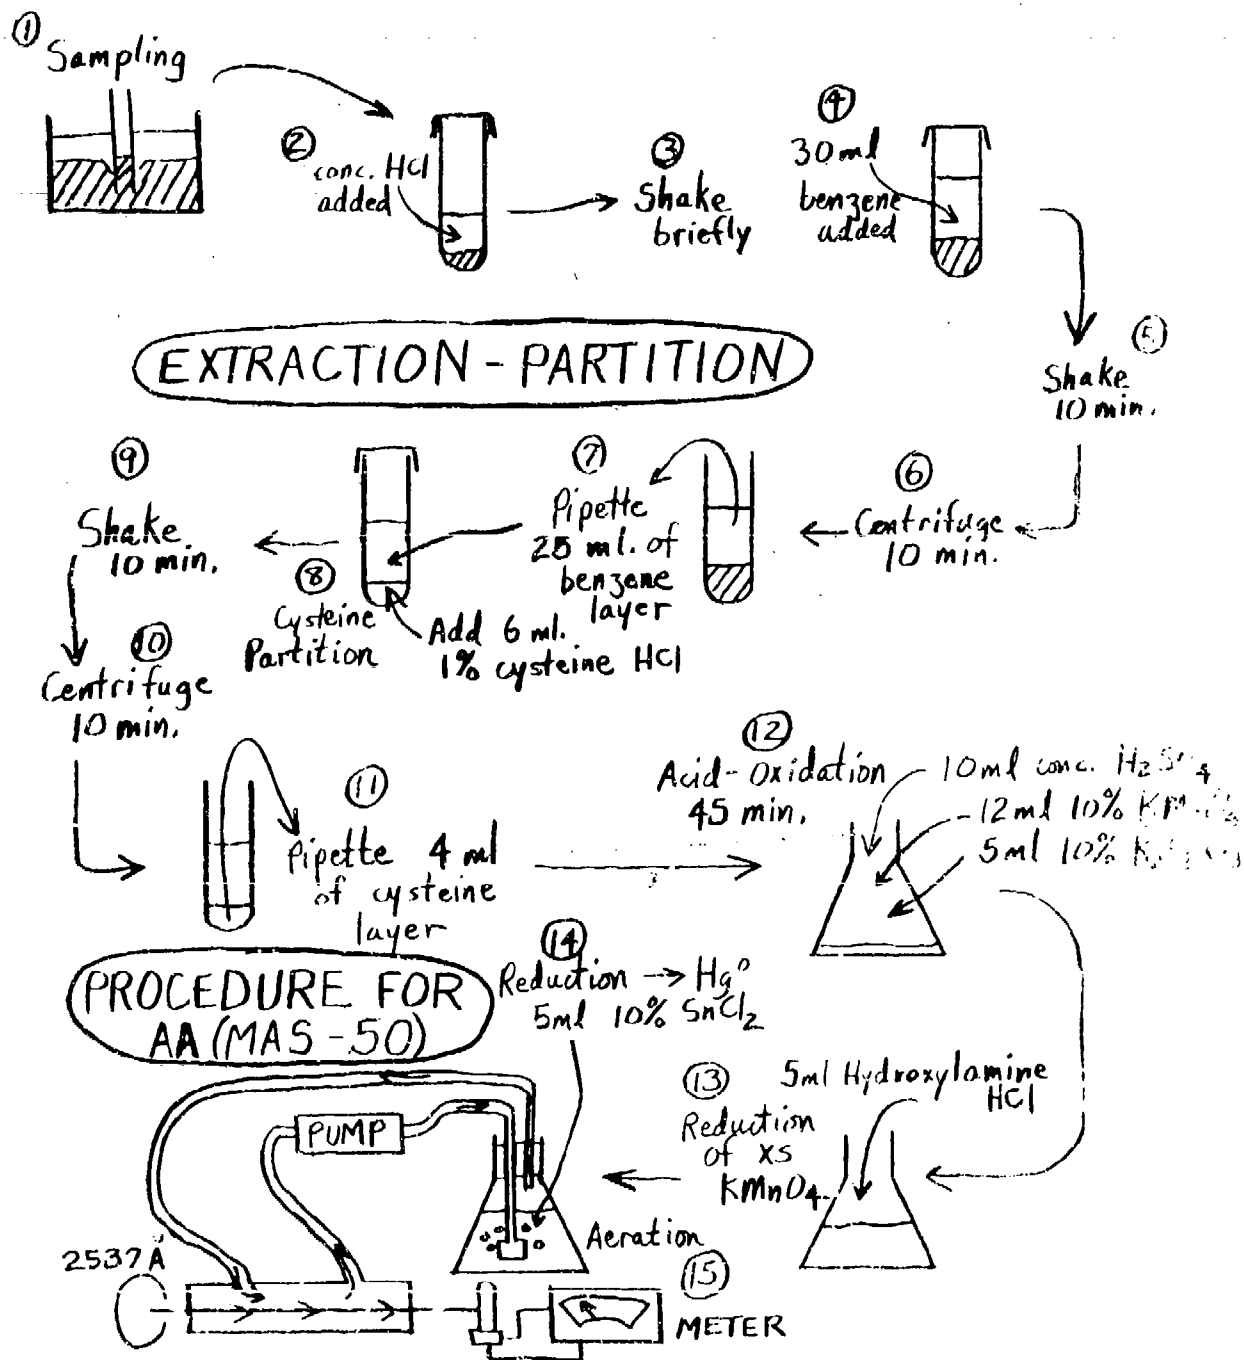 ①
Sampling
②
conc. HCl
added
③
Shake
briefly
④
30 ml
benzene
added
EXTRACTION - PARTITION
⑤
Shake
10 min.
⑥
Centrifuge
10 min.
⑦
Pipette
25 ml. of
benzene
layer
⑧
Cysteine
Partition
Add 6 ml.
1% cysteine HCl
⑨
Shake
10 min.
⑩
Centrifuge
10 min.
⑪
Pipette 4 ml
of cysteine
layer
⑫
Acid-Oxidation
45 min.
10ml conc. H₂SO₄
12ml 10%
5ml 10%
PROCEDURE FOR
AA (MAS-50)
⑭
Reduction → Hg°
5ml 10% SnCl₂
⑬
Reduction
of xs
KMnO₄
5ml Hydroxylamine
HCl
PUMP
Aeration
2537 Å
⑮
METER